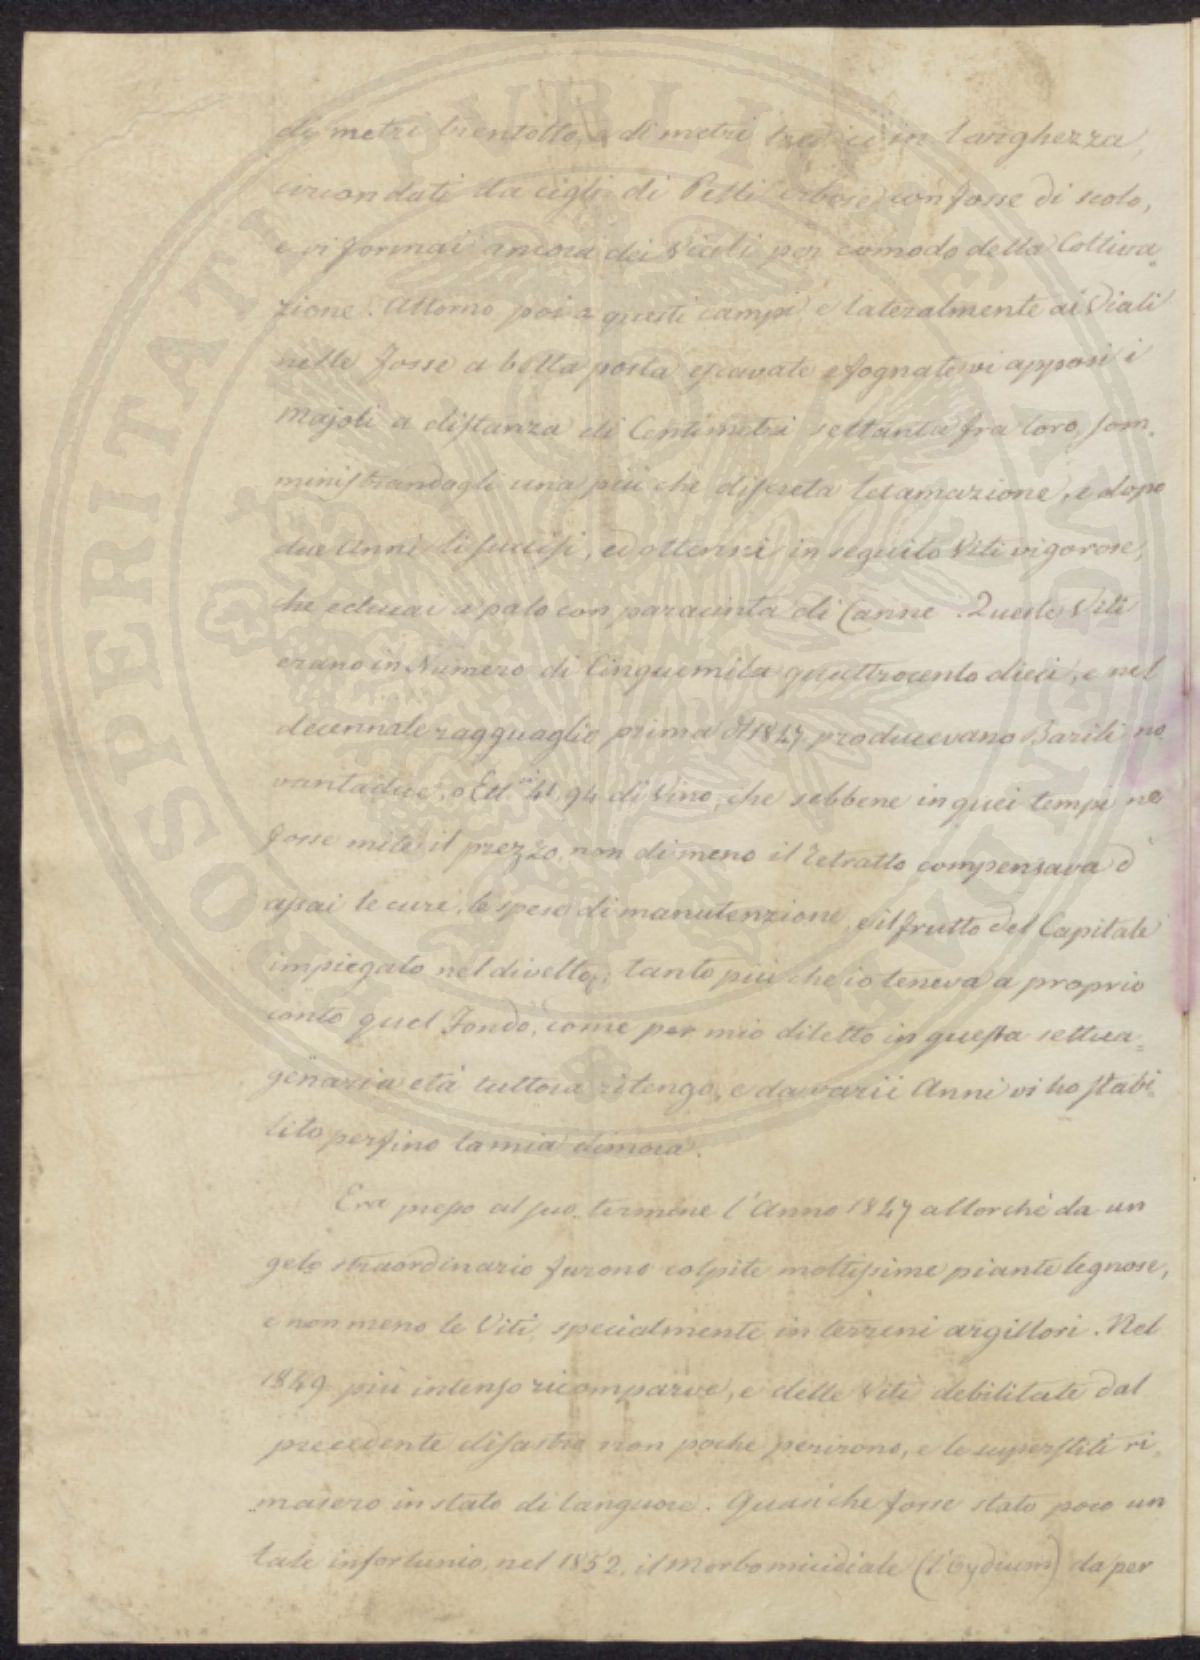 di metri trentotto, e di metri tredici in larghezza,
circondati da cigli di Pelli erbose con fosse di scolo,
e vi formai ancora dei Viali per comodo della Coltiva=
zione. Attorno poi a questi campi e lateralmente ai Viali
nelle fosse a bella posta escavate e fognate vi apposi i
majoli a distanza di Centimetri settanta fra loro, som=
ministrandogli una più che discreta letamazione, e dopo
due Anni li succisi, ed ottenni in seguito Viti vigorose,
che educai a palo con paracinta di Canne. Queste Viti
erano in Numero di Cinquemila quattrocento dieci, e nel
decennale ragguaglio prima del 1847 producevano Barili no
vantadue, o Ett.ri 41,94 di Vino, che sebbene in quei tempi ne
fosse mite il prezzo, non dimeno il retratto compensava d'
assai le cure, le spese di manutenzione, e il frutto del Capitale
impiegato nel divelto; tanto più che io teneva a proprio
conto quel Fondo, come per mio diletto in questa settua=
genaria età tuttora ritengo, e da varii Anni vi ho stabi=
lito perfino la mia dimora.
Era presso al suo termine l'Anno 1847 allorchè da un
gelo straordinario furono colpite moltissime piante legnose,
e non meno le Viti, specialmente in terreni argillosi. Nel
1849 più intenso ricomparve, e delle Viti debilitate dal
precedente disastro non poche perirono, e le superstiti ri=
masero in stato di languore. Quasichè fosse stato poco un
tale infortunio, nel 1852, il Morbo micidiale (l'Oydium) da per
PROSPERITATI PVBLICAE AVGENDAE